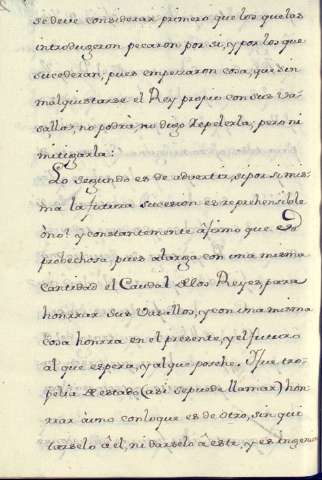 se deve considerar primero que los que las
introdugeron pecaron por si, y por los que
sucederan, pues empezaron cosa, que sin
malquistarse el Rey propio con sus Va-
sallos, no podrà, no digo repelerla, pero ni
mitigarla:
Lo segundo es de advertir, si por si mis-
ma la futura sucesion es reprehensible
ò no? y constantemente afirmo que es
probechosa pues alarga con una misma
cantidad el Caudal de los Reyes, para
honrrar sus Vasallos, y con una misma
cosa honrra en el presente, y el futuro
al que espera, y al que poshe. Fue tro-
pelia de estado (asi se puede llamar) hon-
rrar à uno con lo que es de otro, sin qui
tarselo à èl, ni darselo à este, y es